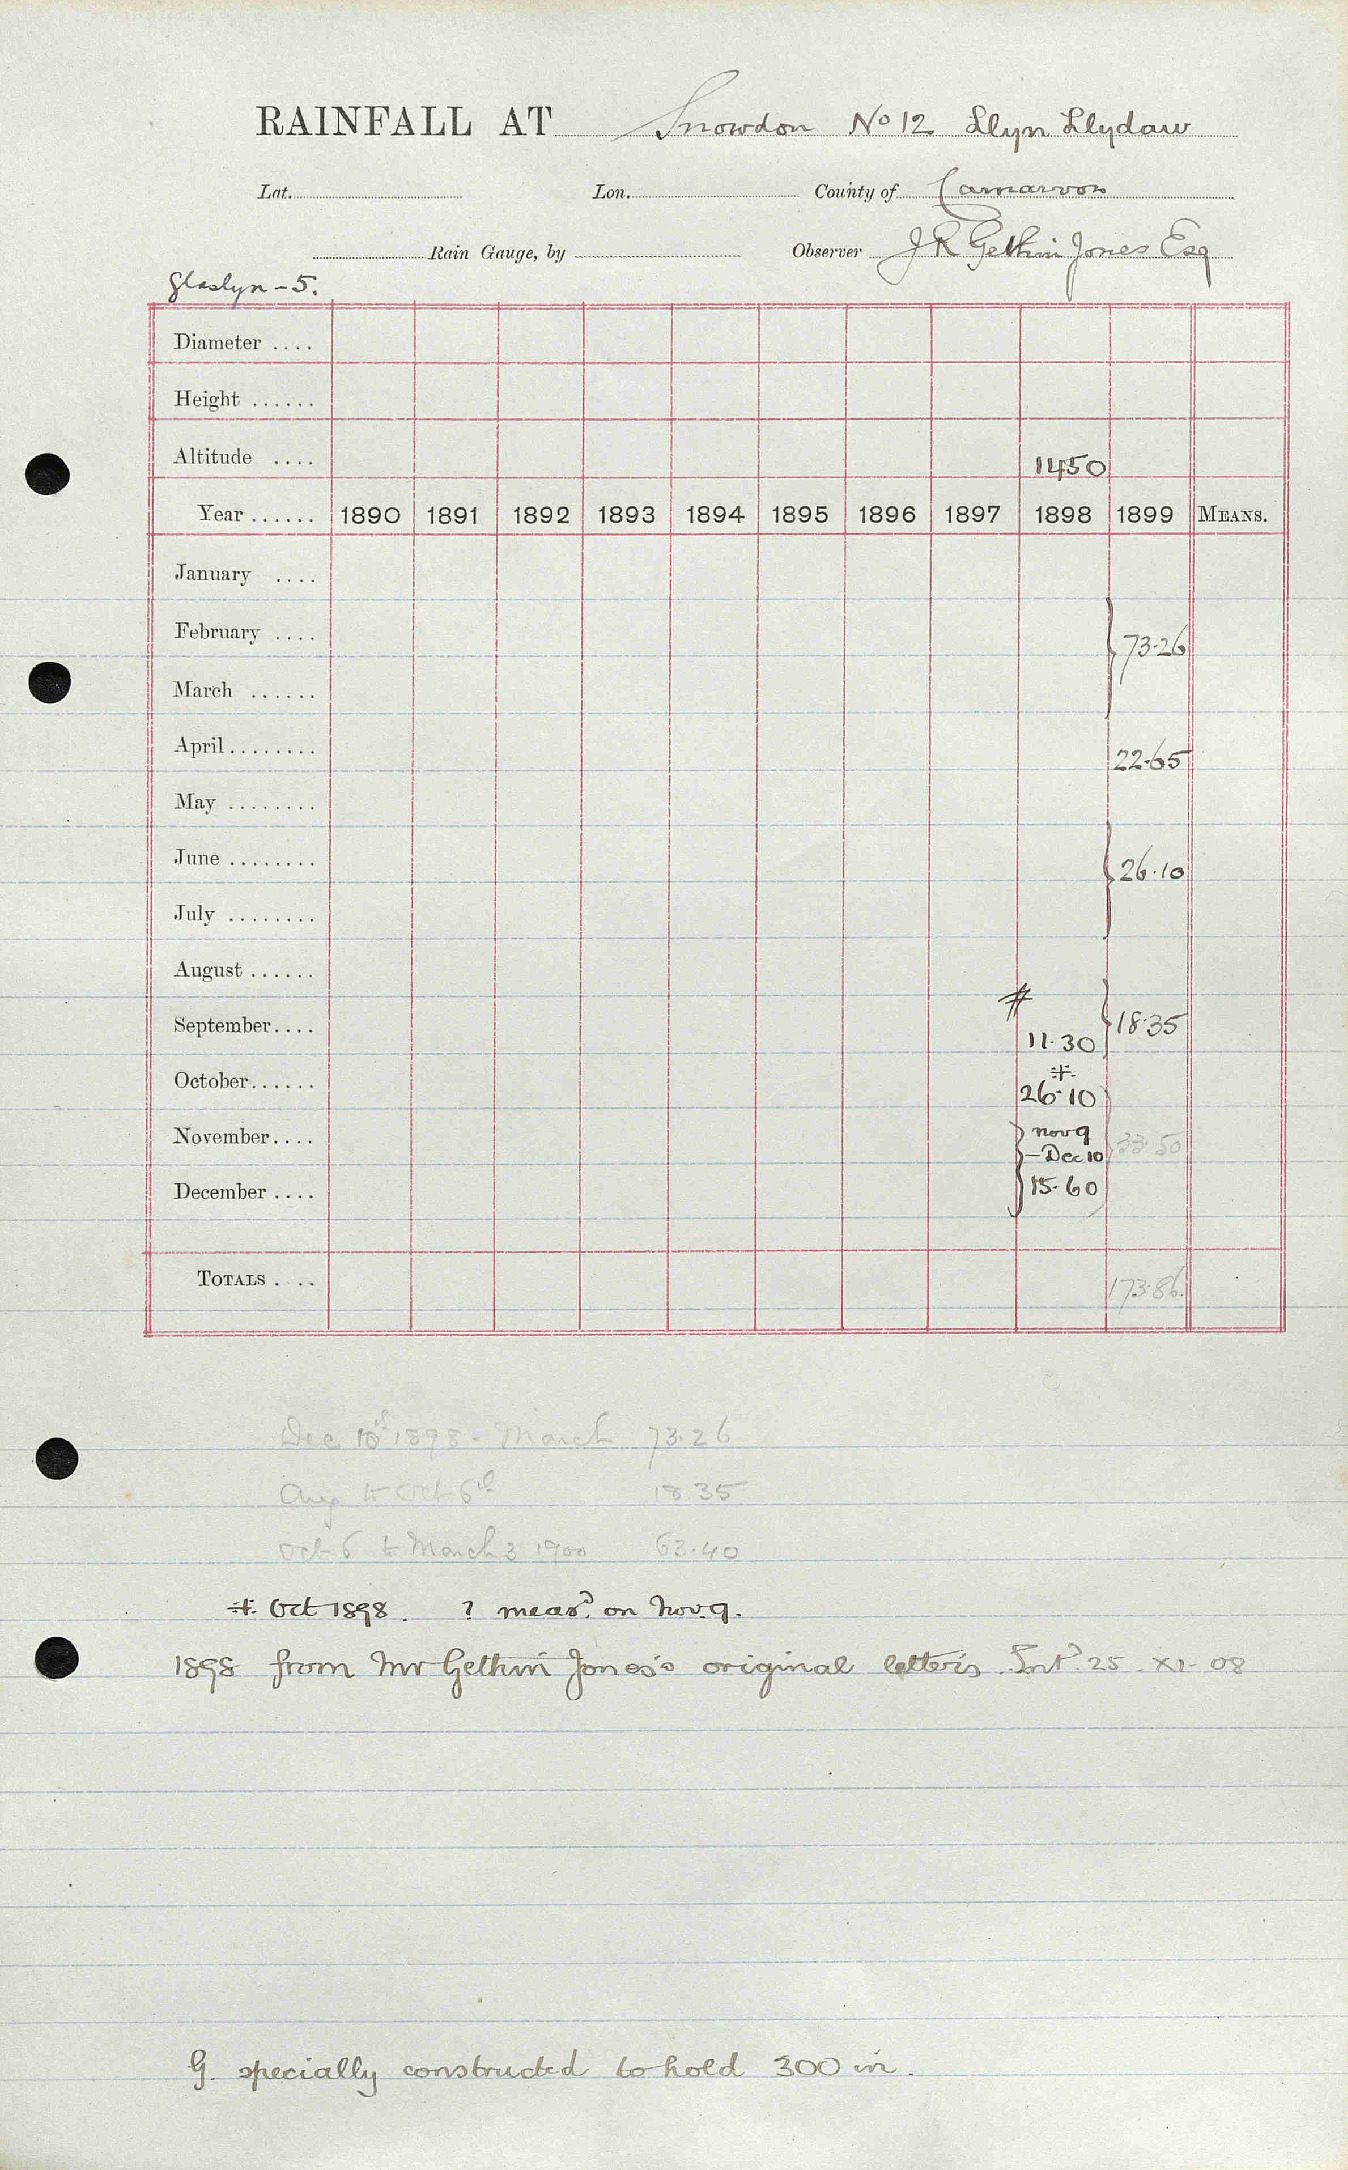 RAINFALL AT Snowdon No 12 Llyn Llydaw
Lat. Lon. County of Carnarvon
Rain Gauge, by Observer J R Gethin Jones Esq
Glaslyn - 5.
Diameter ....
Height ......
Altitude .... 1450
Year ...... 1890 1891 1892 1893 1894 1895 1896 1897 1898 1899 MEANS.
January ....
February .... 73.26
March ......
April ........ 22.65
May ........
June ........ 26.10
July ........
August ......
September.... # 11.30 18.35
October...... ‡ 26.10
November.... Nov 9 - Dec 10 33.50
December .... 15.60
TOTALS .... 173.86
Dec 10th 1898 - March 73.26
Aug to Oct 6th 18.35
Oct 6 to March 3 1900 63.40
‡ Oct 1898. ? measd. on Nov. 9.
1898 from Mr Gethin Jones's original letters. Entd. 25. XI. 08
G. specially constructed to hold 300 in.